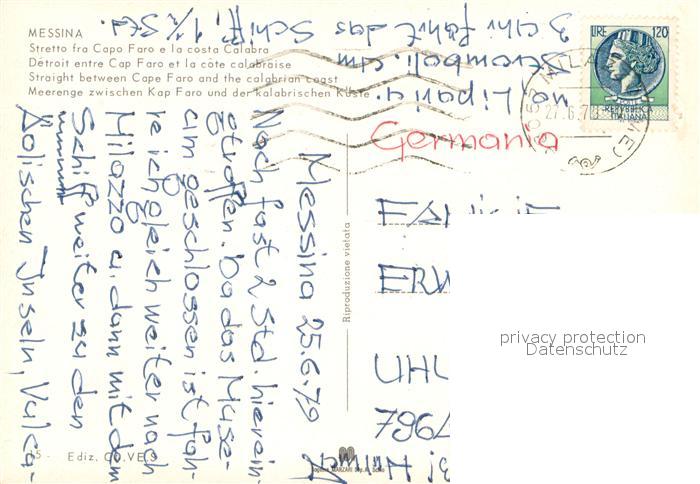 MESSINA
Stretto fra Capo Faro e la costa Calabra
Détroit entre Cap Faro et la côte calabraise
Straight between Cape Faro and the calabrian coast
Meerenge zwischen Kap Faro und der kalabrischen Küste
LIRE 120
REPVBBLICA
ITALIANA
27.6.79
Germania
FAMILIE
ERW
UHL
796
privacy protection
Datenschutz
Riproduzione vietata
Messina 25.6.79
Nach fast 2 Std. hier ein-
getroffen. Da das Muse-
um geschlossen ist fah-
re ich gleich weiter nach
Milazzo u. dann mit dem
Schiff weiter zu den
Äolischen Inseln, Vulca-
no, Lipari u.
Stromboli. Um
3 Uhr fährt das
Schiff, 1 1/2 Std.
15 - Ediz. CO.VE.S.